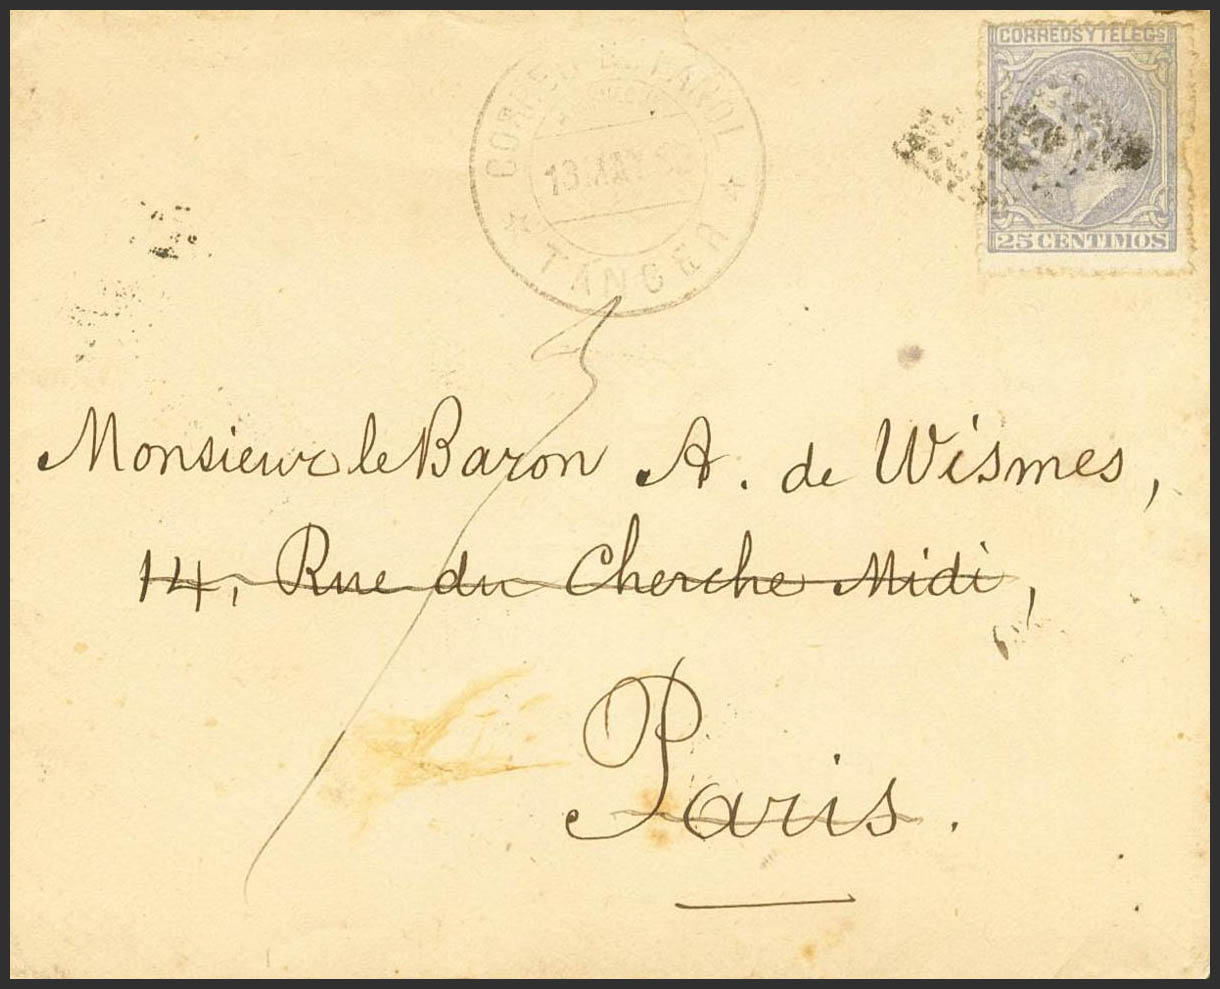 CORREO ESPAÑOL
13 MAY
TANGER
CORREOS Y TELEGs
25 CENTIMOS
Monsieur le Baron A. de Wismes,
14, Rue du Cherche Midi,
Paris.